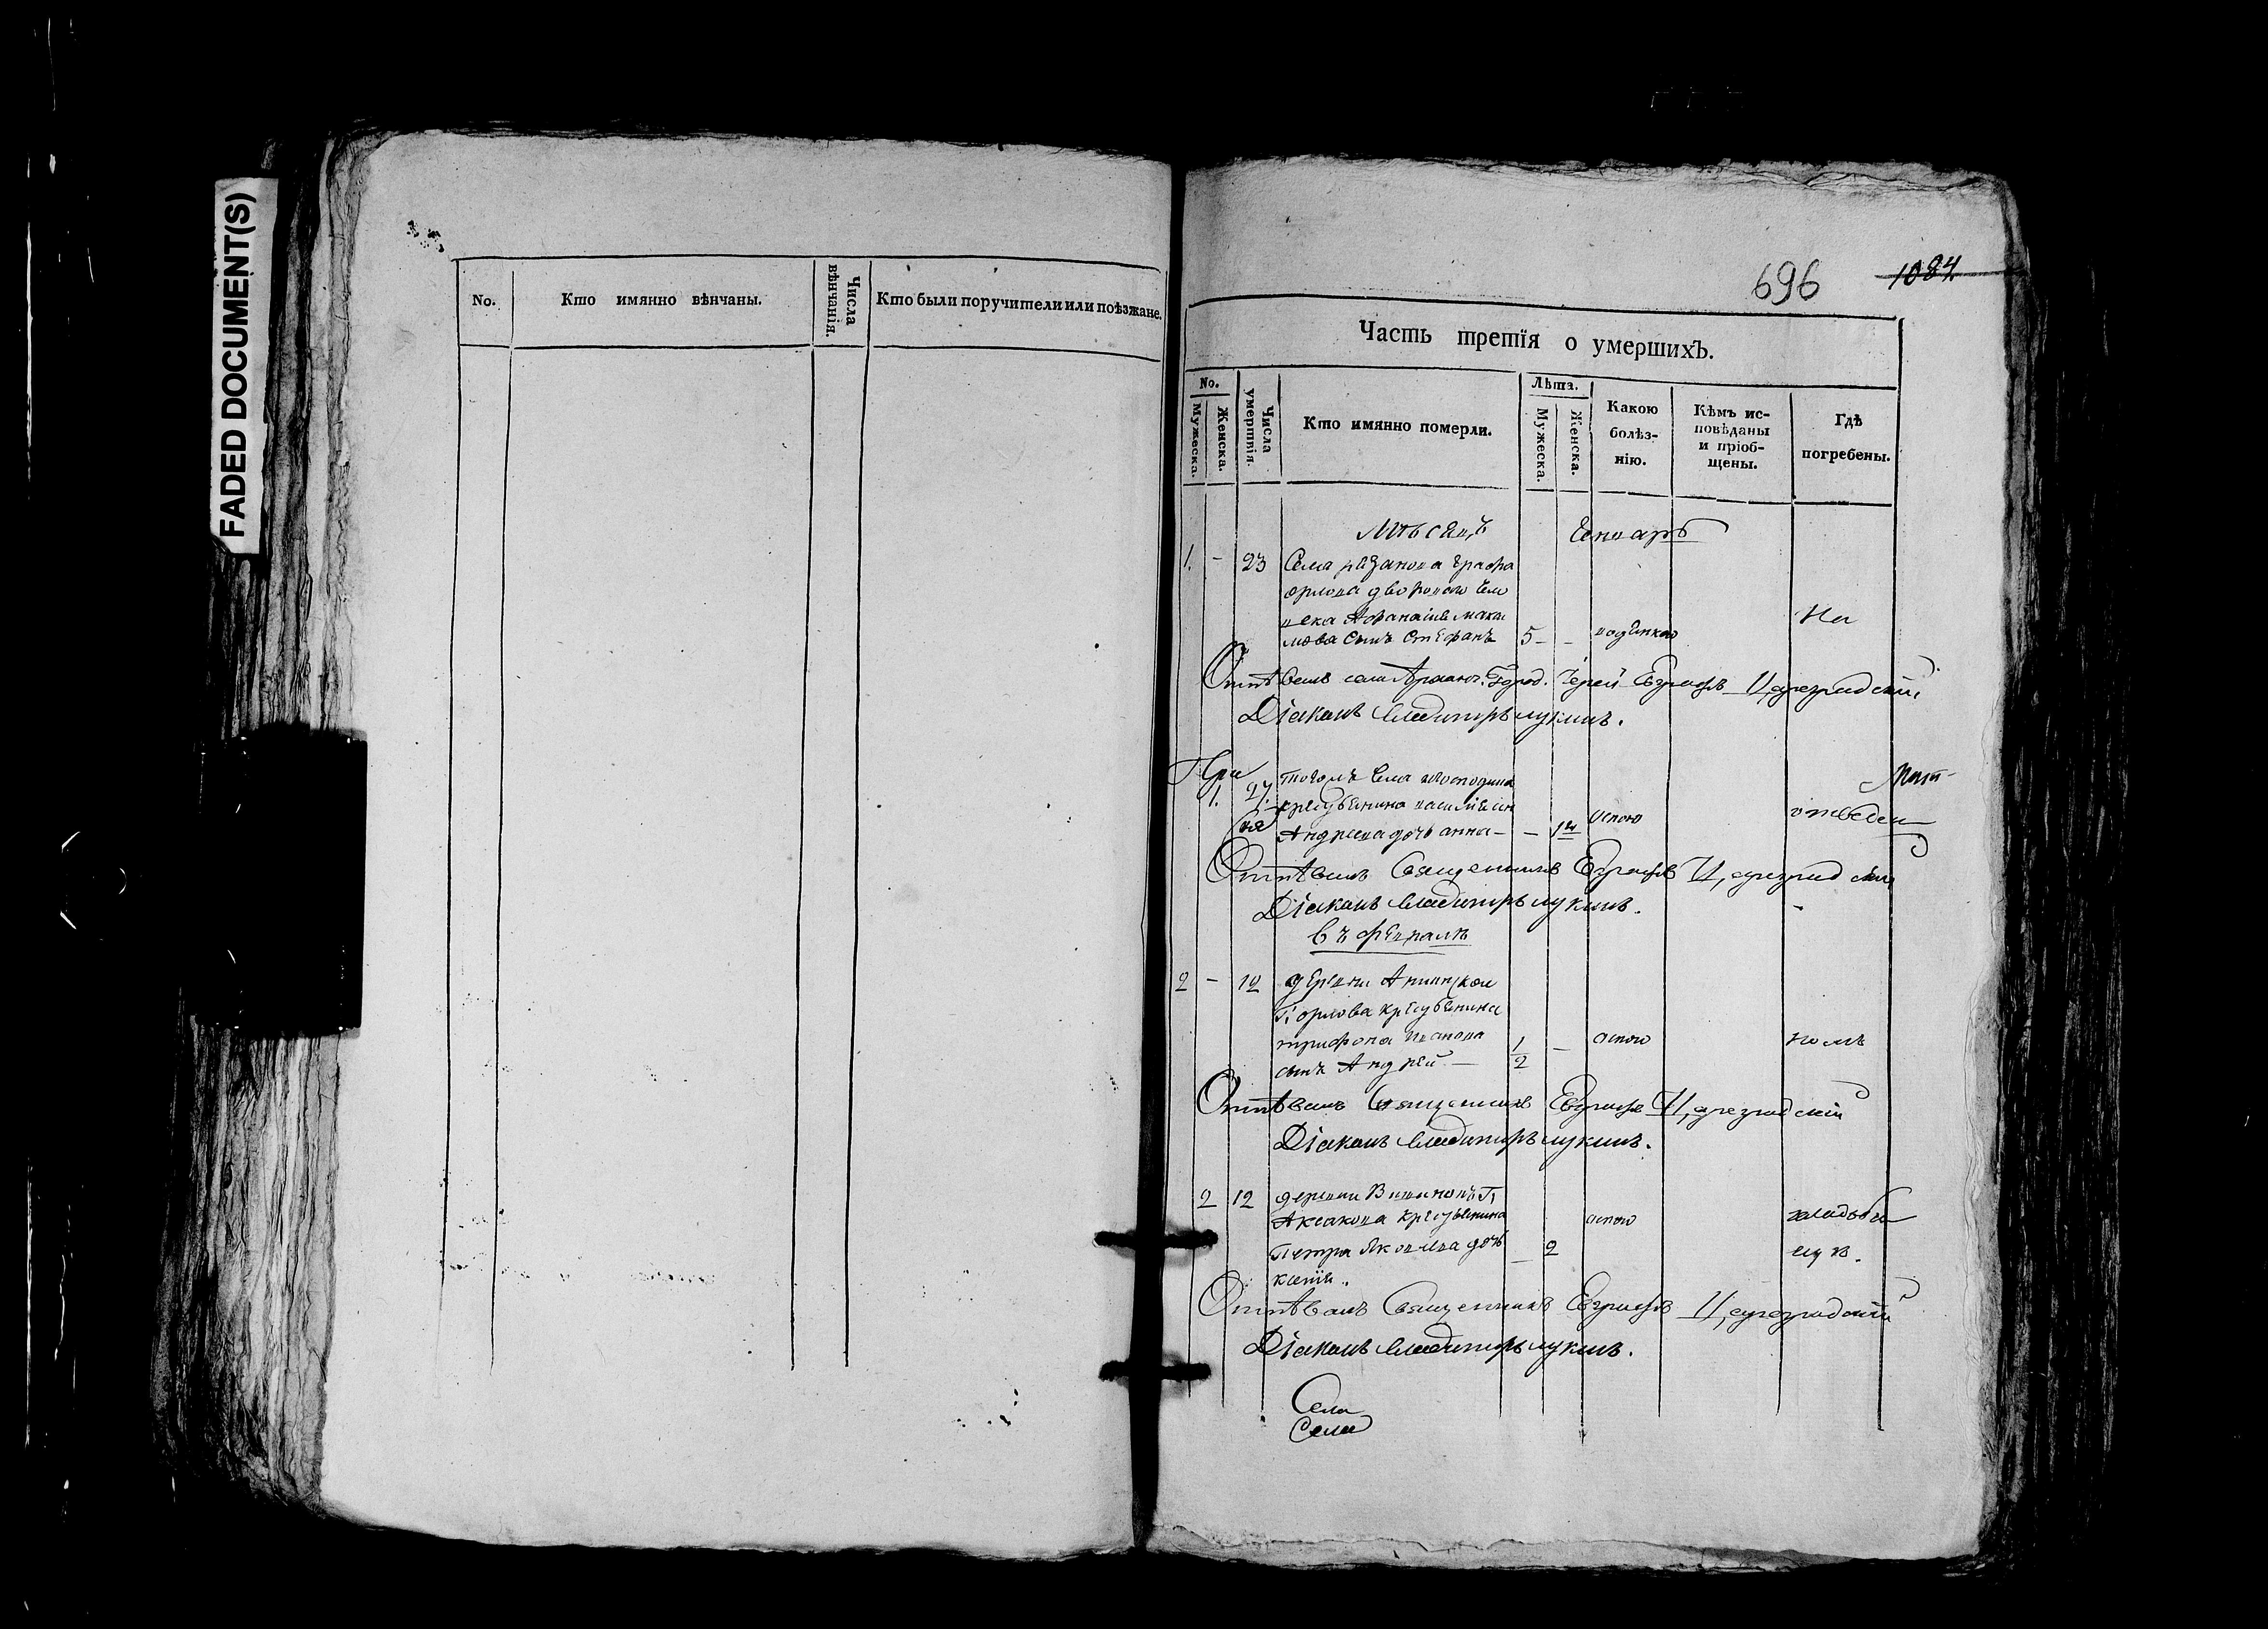 FADED DOCUMENT(S)
No.
Кто имянно вѣнчаны.
Числа вѣнчанія.
Кто были поручители или поѣзжане.
696 1084
Часть третія о умершихъ.
No.
Мужеска.
Женска.
Числа умертвія.
Кто имянно померли.
Лѣта.
Мужеска.
Женска.
Какою болѣзнію.
Кѣмъ исповѣданы и пріобщены.
Гдѣ погребены.
Мѣсяцъ Генварь
1. - 23 Села рязанова графа
орлова двороваго чело
века Афанасія макси
мова сынъ Стефанъ 5 - - родимою На
Отпѣвалъ села Іерей Евграфъ Цареградскій
Діаконъ Владимиръ лукинъ.
При
1. 27. тогожъ села господина
крестьянина василія
Андреева дочь анна - - 1½ оспою отведен
Отпѣвалъ Священникъ Евграфъ Цареградскій
Діаконъ Владимиръ лукинъ.
въ февралѣ
2 - 12 деревни Аннинской
Г: орлова крестьянина
трифона Иванова
сынъ Андрей - 1/2 - оспою номъ
Отпѣвалъ Священникъ Евграфъ Цареградскій
Діаконъ Владимиръ лукинъ.
2 12 деревни Г:
Аксакова крестьянина
Петра Яковлева дочь
ксенія. - 2 оспою кладьби
щѣ.
Отпѣвалъ Священникъ Евграфъ Цареградскій
Діаконъ Владимиръ лукинъ.
Села
Села